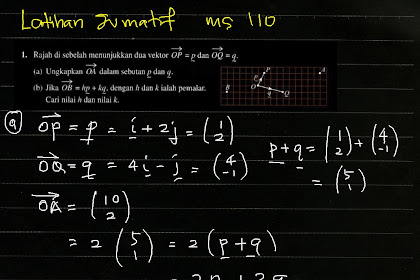 Latihan Sumatif ms 110
1. Rajah di sebelah menunjukkan dua vektor OP = p dan OQ = q.
(a) Ungkapkan OA dalam sebutan p dan q.
(b) Jika OB = hp + kq, dengan h dan k ialah pemalar.
Cari nilai h dan nilai k.
P
A
O
q
Q
B
(a) OP = p = i + 2j = (1 2)
OQ = q = 4i - j = (4 -1)
OA = (10 2)
= 2 (5 1) = 2 (p + q)
= 2p + 2q
p + q = (1 2) + (4 -1)
= (5 1)